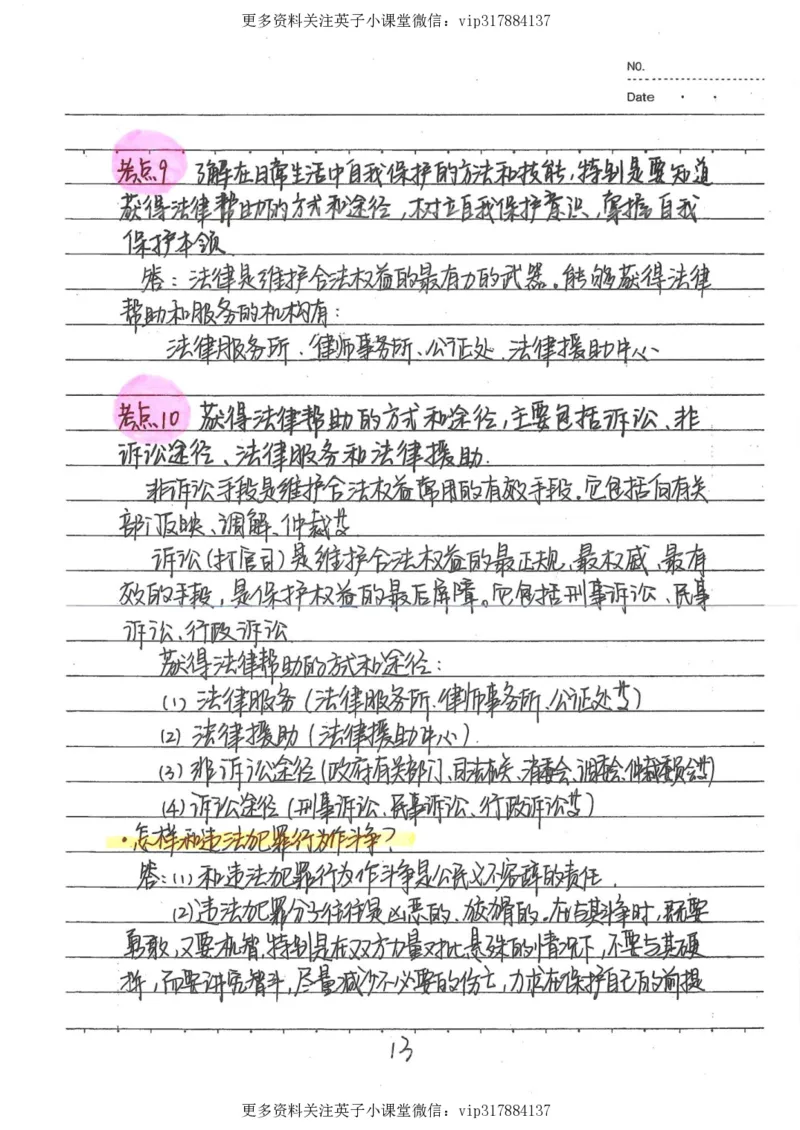 更多资料关注英子小课堂微信：vip317884137
NO.
Date
考点9 了解在日常生活中自我保护的方法和技能，特别是要知道
获得法律帮助的方式和途径，树立自我保护意识，掌握自我
保护本领
答：法律是维护合法权益的最有力的武器。能够获得法律
帮助和服务的机构有：
法律服务所、律师事务所、公证处、法律援助中心
考点10 获得法律帮助的方式和途径，主要包括诉讼、非
诉讼途径、法律服务和法律援助.
非诉讼手段是维护合法权益常用的有效手段。它包括向有关
部门反映、调解、仲裁等
诉讼(打官司)是维护合法权益的最正规、最权威、最有
效的手段，是保护权益的最后屏障。它包括刑事诉讼、民事
诉讼、行政诉讼
获得法律帮助的方式和途径：
(1) 法律服务(法律服务所、律师事务所、公证处等)
(2) 法律援助(法律援助中心)
(3) 非诉讼途径(政府有关部门、司法机关、消委会、调委会、仲裁委员会等)
(4) 诉讼途径(刑事诉讼、民事诉讼、行政诉讼等)
·怎样和违法犯罪行为作斗争？
答：(1) 和违法犯罪行为作斗争是公民义不容辞的责任.
(2) 违法犯罪分子往往是凶恶的、狡猾的。在与其斗争时，既要
勇敢，又要机智。特别是在双方力量对比悬殊的情况下，不要与其硬
拼，而要讲究智斗，尽量减少不必要的伤亡，力求在保护自己的前提
13
更多资料关注英子小课堂微信：vip317884137